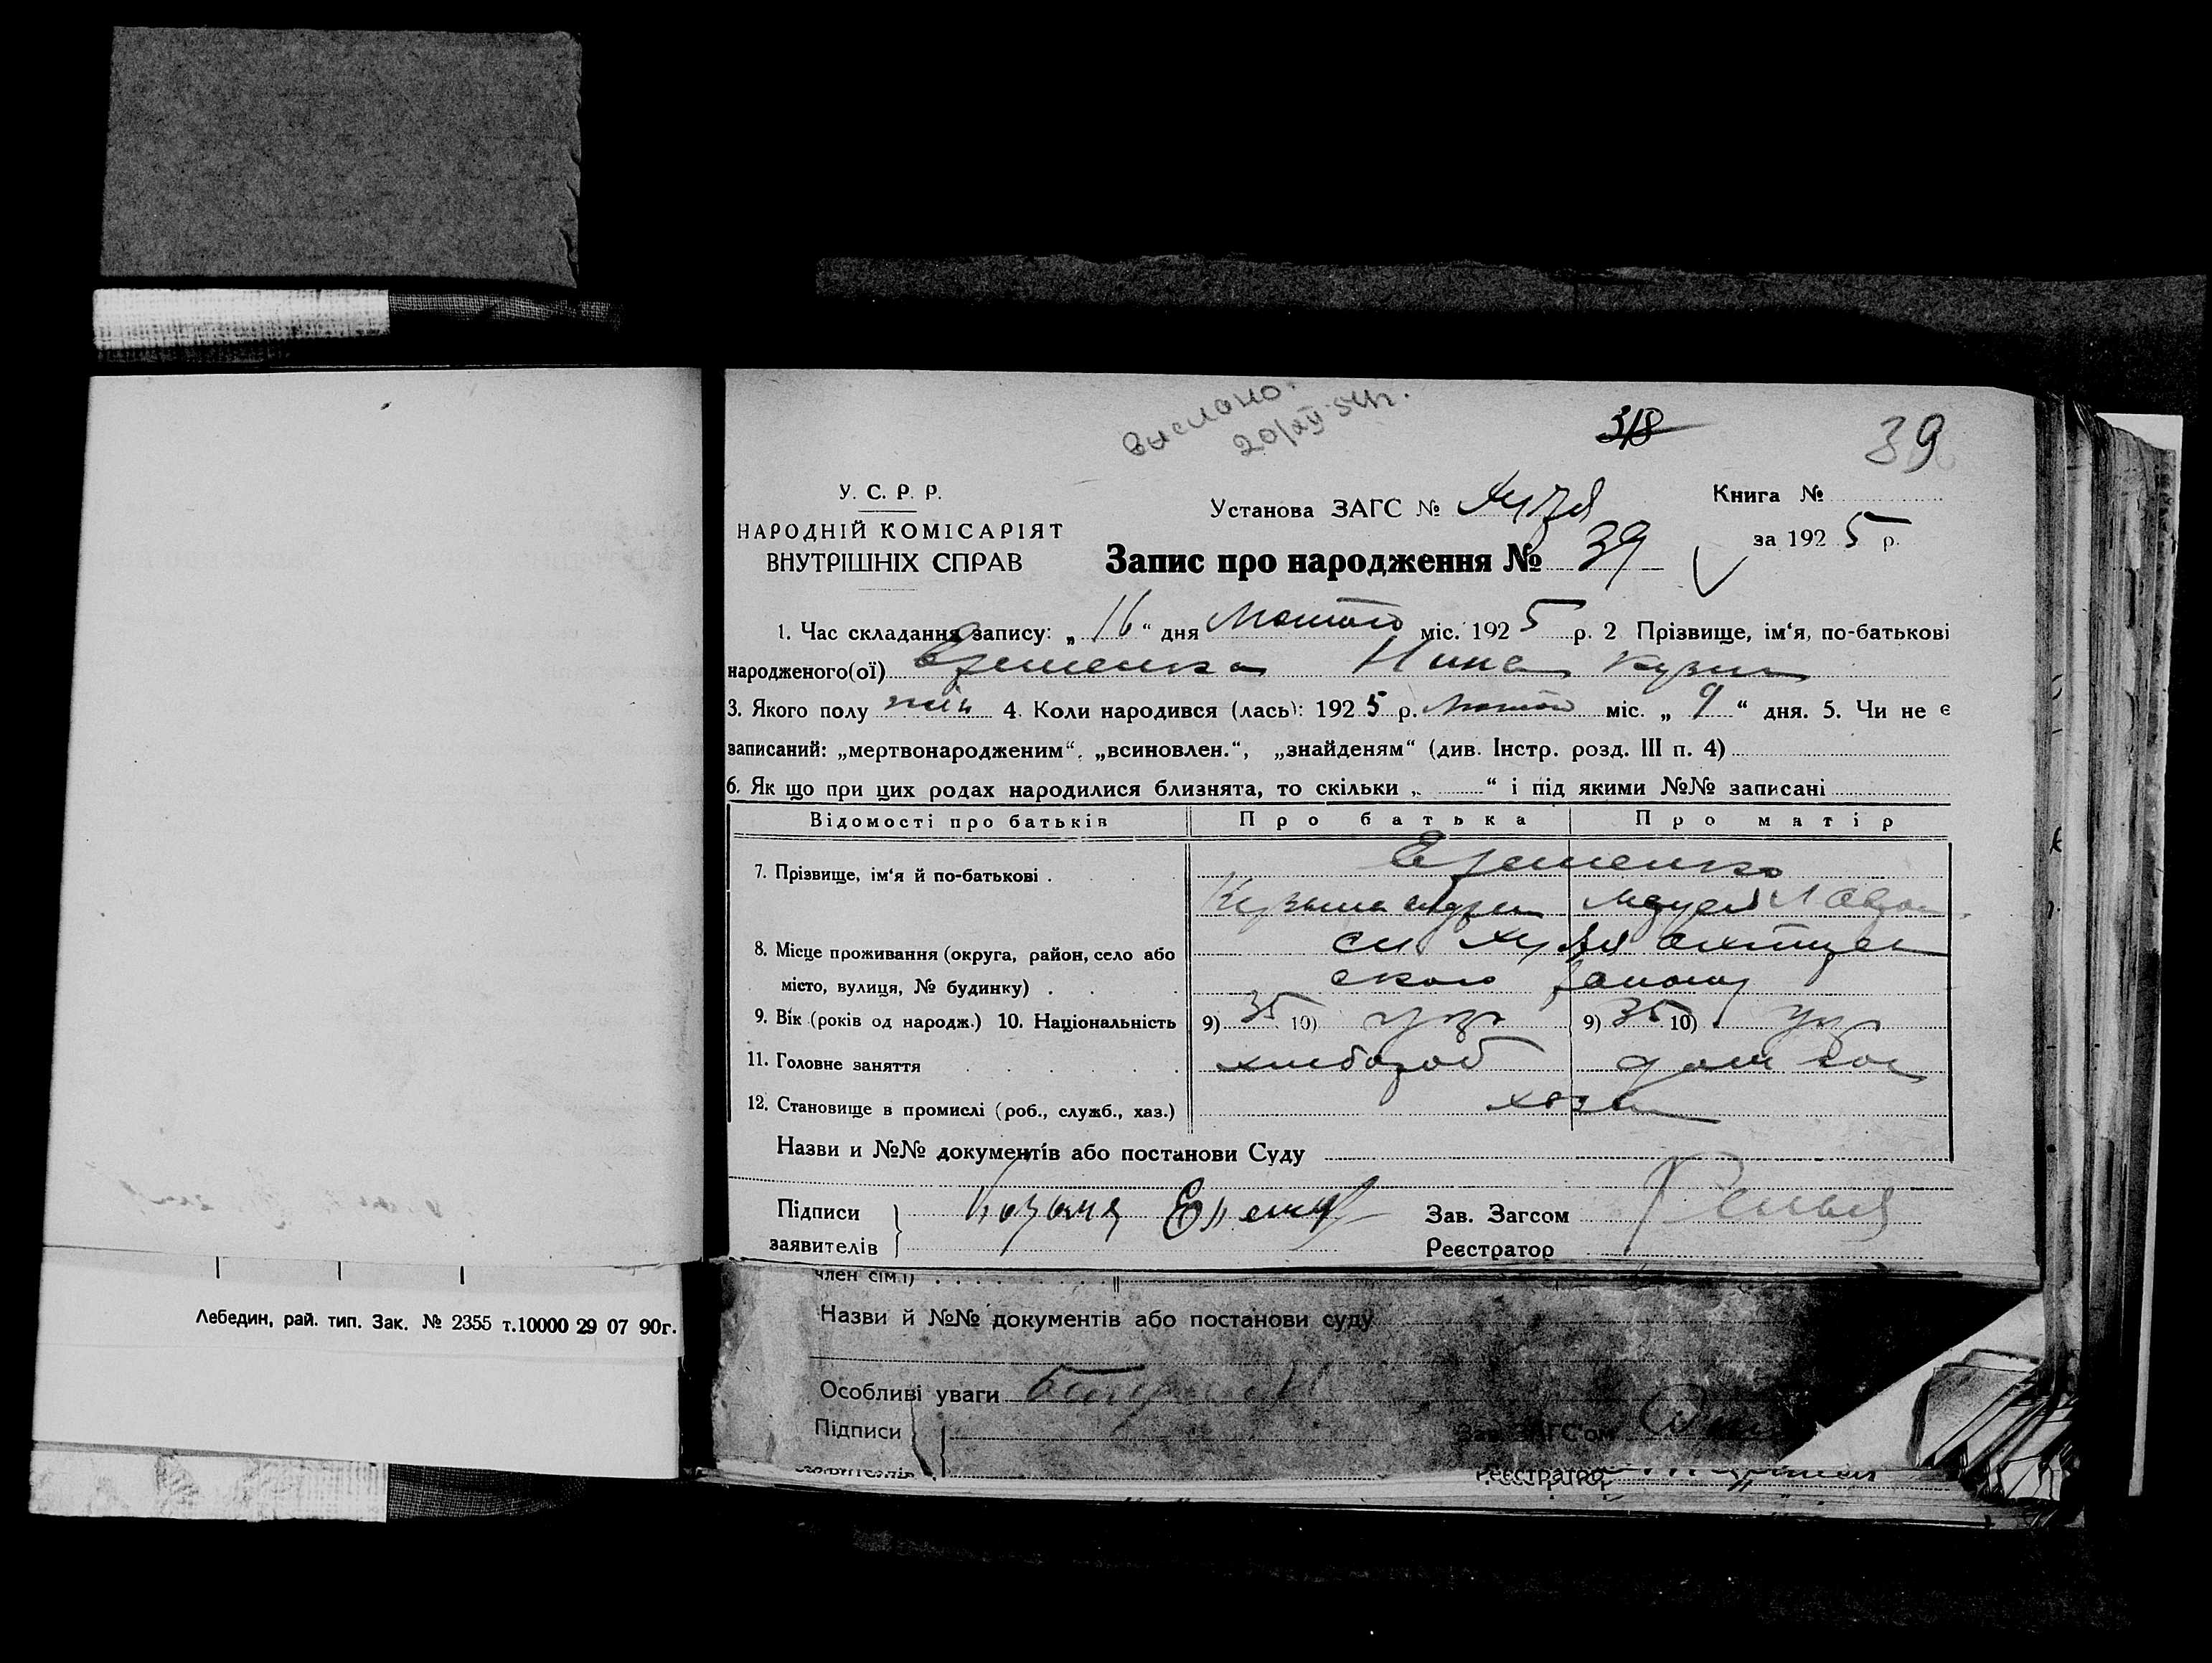 выслано.
20/XII 54г.
318
39
У. С. Р. Р.
НАРОДНІЙ КОМІСАРІЯТ
ВНУТРІШНІХ СПРАВ
Установа ЗАГС №
Книга №
за 1925 р.
Запис про народження № 39
1. Час складання запису: „16“ дня Лютого міс. 1925 р. 2 Прізвище, ім‘я, по-батькові
народженого(ої) Єременко Нина Кузьм
3. Якого полу жін 4. Коли народився (лась): 1925 р. Лютого міс. „9“ дня. 5. Чи не є
записаний: „мертвонародженим“, „всиновлен.“, „знайденям“ (див. Інстр. розд. III п. 4)
6. Як що при цих родах народилися близнята, то скільки „ “ і під якими №№ записані
Відомості про батьків Про батька Про матір
7. Прізвище, ім‘я й по-батькові . Єременко
Кузьма
8. Місце проживання (округа, район, село або
місто, вулиця, № будинку) . ского району
9. Вік (років од народж.) 10. Національність 9) 35 10) укр 9) 35 10) укр
11. Головне заняття хлібороб дом гос
12. Становище в промислі (роб., служб., хаз.) хазяї
Назви и №№ документів або постанови Суду
Підписи
заявителів
Зав. Загсом
Реєстратор
Лебедин, рай. тип. Зак. № 2355 т.10000 29 07 90г.
член сім.ї)
Назви й №№ документів або постанови суду
Особливі уваги
Підписи
Зав. ЗАГС'ом
заявителів
Реєстратор